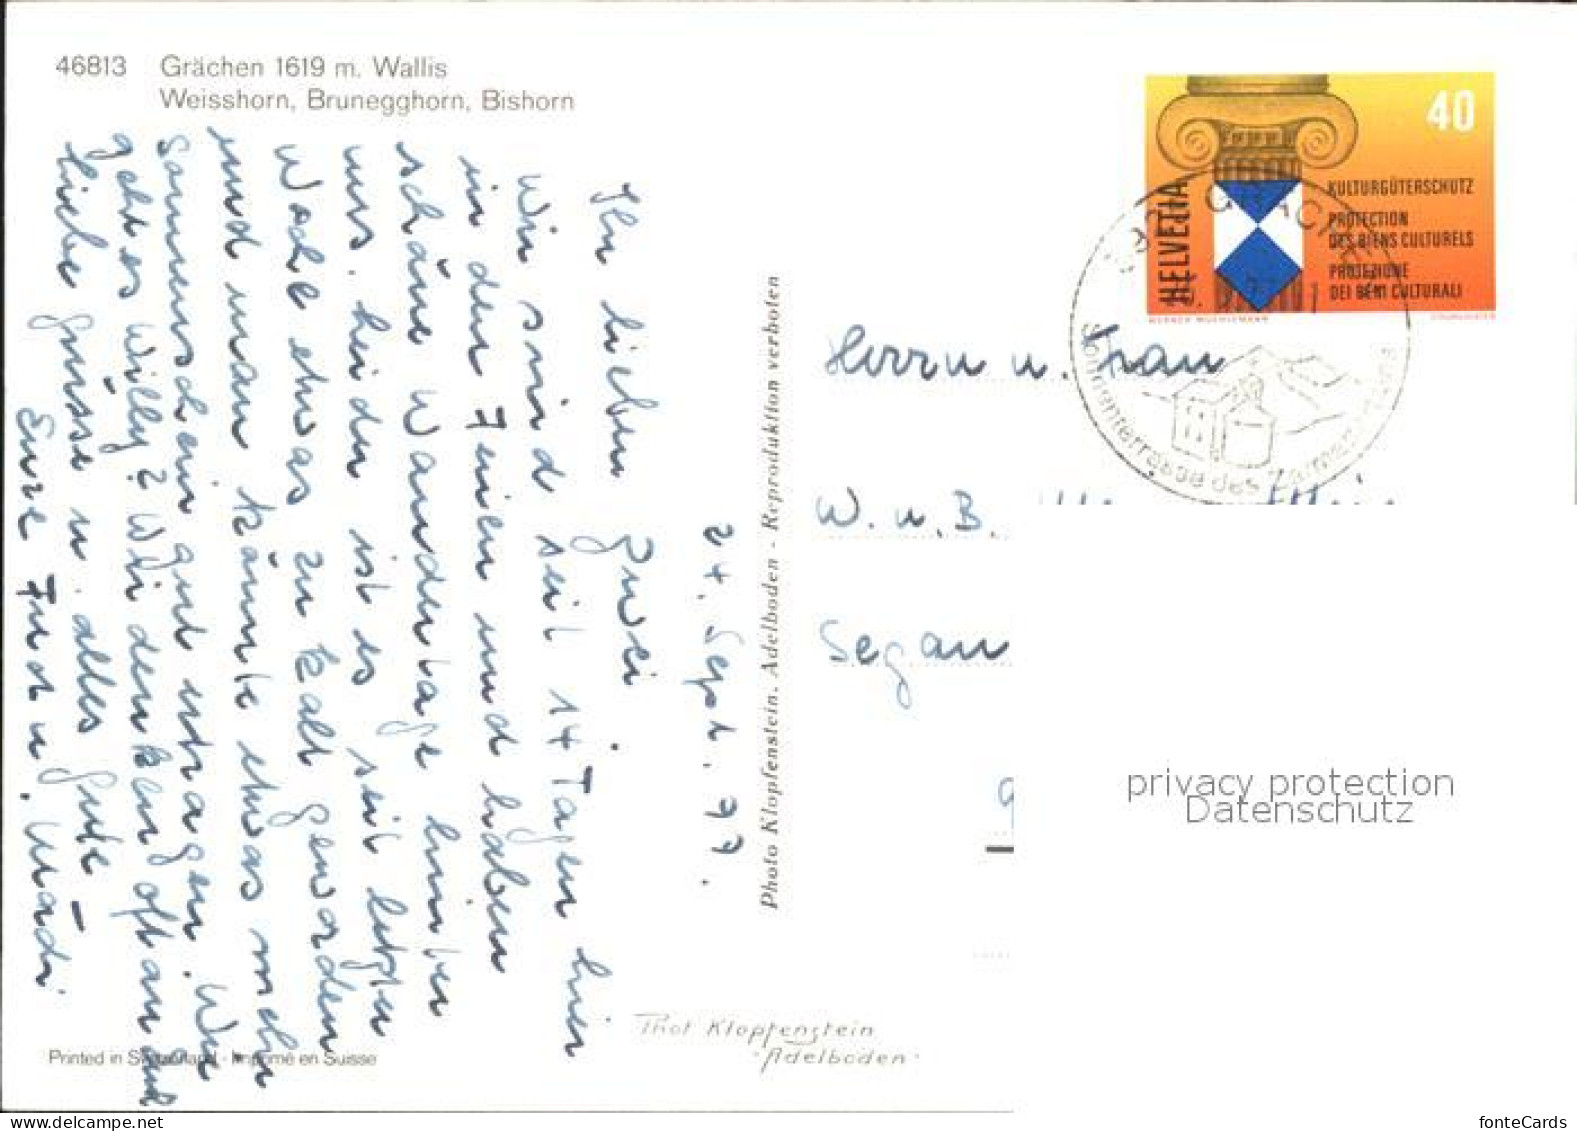 46813 Grächen 1619 m. Wallis
Weisshorn, Brunegghorn, Bishorn
24. Sept. 77.
Ihr lieben Zwei.
Wir sind seit 14 Tagen hier
in den Ferien und haben
schöne Wandertage hinter
uns. Leider ist es seit letzter
Woche etwas zu kalt geworden
und man könnte etwas mehr
Sonnenschein gut ertragen. Wie
geht es Willy? Wir denken oft an Euch
liebe Grüsse u. alles Gute –
Eure Ferd u. Mädi.
Photo Klopfenstein, Adelboden - Reproduktion verboten
Printed in Switzerland - Imprimé en Suisse
Phot Klopfenstein
Adelboden
40
HELVETIA
KULTURGÜTERSCHUTZ
PROTECTION
DES BIENS CULTURELS
PROTEZIONE
DEI BENI CULTURALI
GRÄCHEN
Sonnenterrasse des Zermattertals
Herrn u. Frau
W. u. B.
Segan
privacy protection
Datenschutz
www.delcampe.net
fonteCards